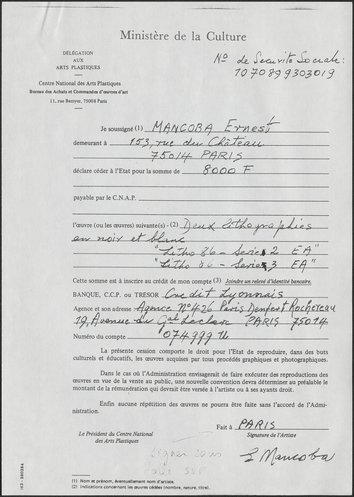 Ministère de la Culture
DÉLÉGATION
AUX
ARTS PLASTIQUES
Centre National des Arts Plastiques
Bureau des Achats et Commandes d'œuvres d'art
11, rue Berryer, 75008 Paris
N° de Sécurité Sociale:
1070899303019
Je soussigné (1) MANCOBA Ernest
demeurant à 153, rue du Château
75014 PARIS
déclare céder à l'Etat pour la somme de 8000 F
payable par le C.N.A.P.
l'œuvre (ou les œuvres) suivante(s) - (2) Deux lithographies
en noir et blanc
"Litho 86 - Serie 2 EA"
"Litho 86 - Serie 3 EA"
Cette somme est à inscrire au crédit de mon compte (3) Joindre un relevé d'identité bancaire.
BANQUE, C.C.P. ou TRESOR Credit Lyonnais
Agence et son adresse Agence N° 426 Paris Denfert Rochereau
19, Avenue du Gal Leclerc PARIS 75014
Numéro du compte 074999 U
La présente cession comporte le droit pour l'Etat de reproduire, dans des buts
culturels et éducatifs, les œuvres acquises par tous procédés graphiques et photographiques.
Dans le cas où l'Administration envisagerait de faire exécuter des reproductions des
œuvres en vue de la vente au public, une nouvelle convention devra déterminer au préalable le
montant de la rémunération qui devrait être versée à l'artiste ou à ses ayants droit.
Enfin aucune répétition des œuvres ne pourra être faite sans l'accord de l'Administration.
Fait à PARIS
Le Président du Centre National
des Arts Plastiques
Signature de l'Artiste
E Mancoba
(1) Nom et prénom, éventuellement nom d'artiste.
(2) Indications concernant les œuvres cédées (nombre, nature, titre).